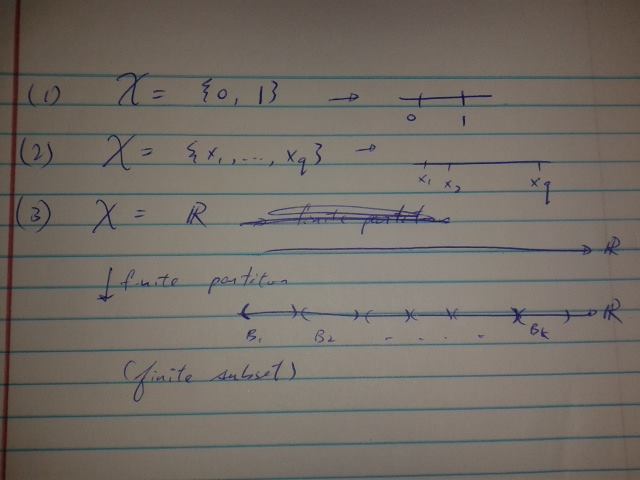 (1) 𝒳 = {0, 1} →
0 1
(2) 𝒳 = {x₁, ..., x_q} →
x₁ x₂ x_q
(3) 𝒳 = ℝ finite partition
ℝ
↓ finite partiton
ℝ
B₁ B₂ . . . . . B_k
(finite subset)